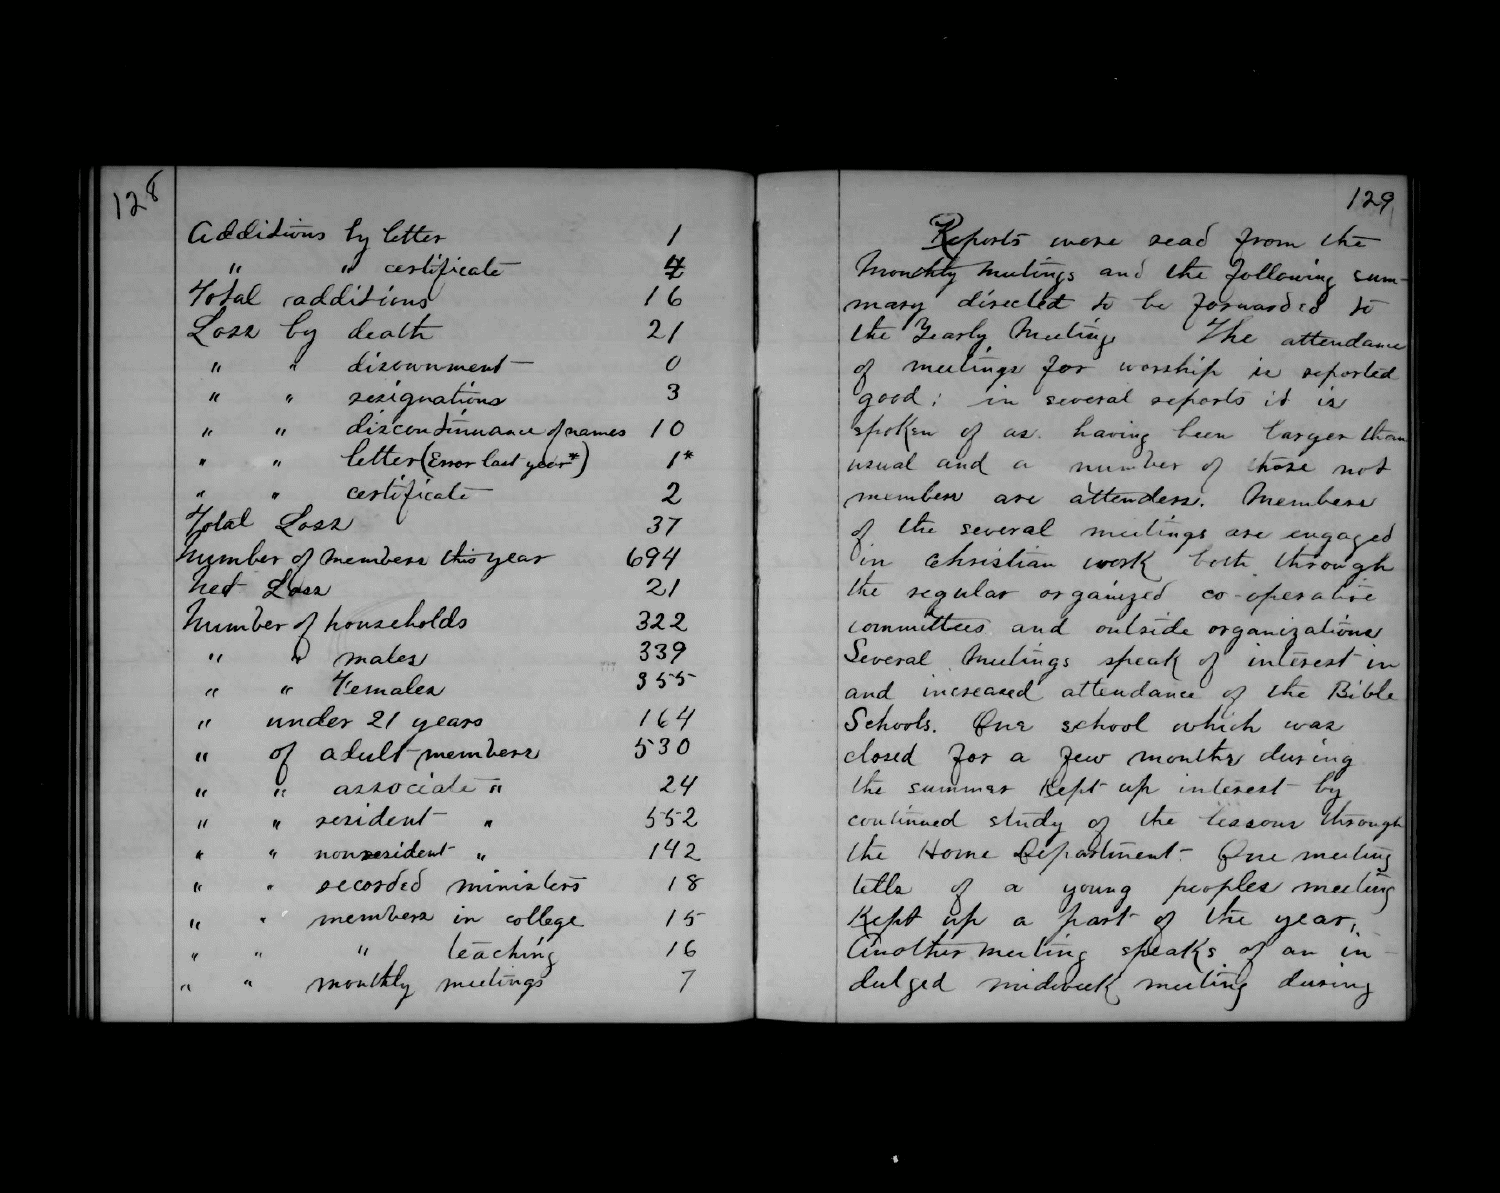 128
Additions by letter 1
" " certificate 4
Total additions 16
Loss by death 21
" " disownment 0
" " resignations 3
" " discontinuance of names 10
" " letter (Error last year*) 1*
" " certificate 2
Total Loss 37
Number of members this year 694
Net Loss 21
Number of households 322
" " males 339
" " Females 355
" under 21 years 164
" of adult members 530
" " associate " 24
" " resident " 552
" " nonresident " 142
" " recorded ministers 18
" " members in college 15
" " " teaching 16
" " monthly meetings 7
129
Reports were read from the
Monthly Meetings and the following sum-
mary directed to be forwarded to
the Yearly Meeting. The attendance
of meetings for worship is reported
good; in several reports it is
spoken of as having been larger than
usual and a number of those not
members are attenders. Members
of the several meetings are engaged
in Christian work both through
the regular organized co-operative
committees and outside organizations
Several Meetings speak of interest in
and increased attendance of the Bible
Schools. One school which was
closed for a few months during
the summer kept up interest by
continued study of the lessons through
the Home Department. One meeting
tells of a young peoples meeting
kept up a part of the year,
Another meeting speaks of an in-
dulged midweek meeting during